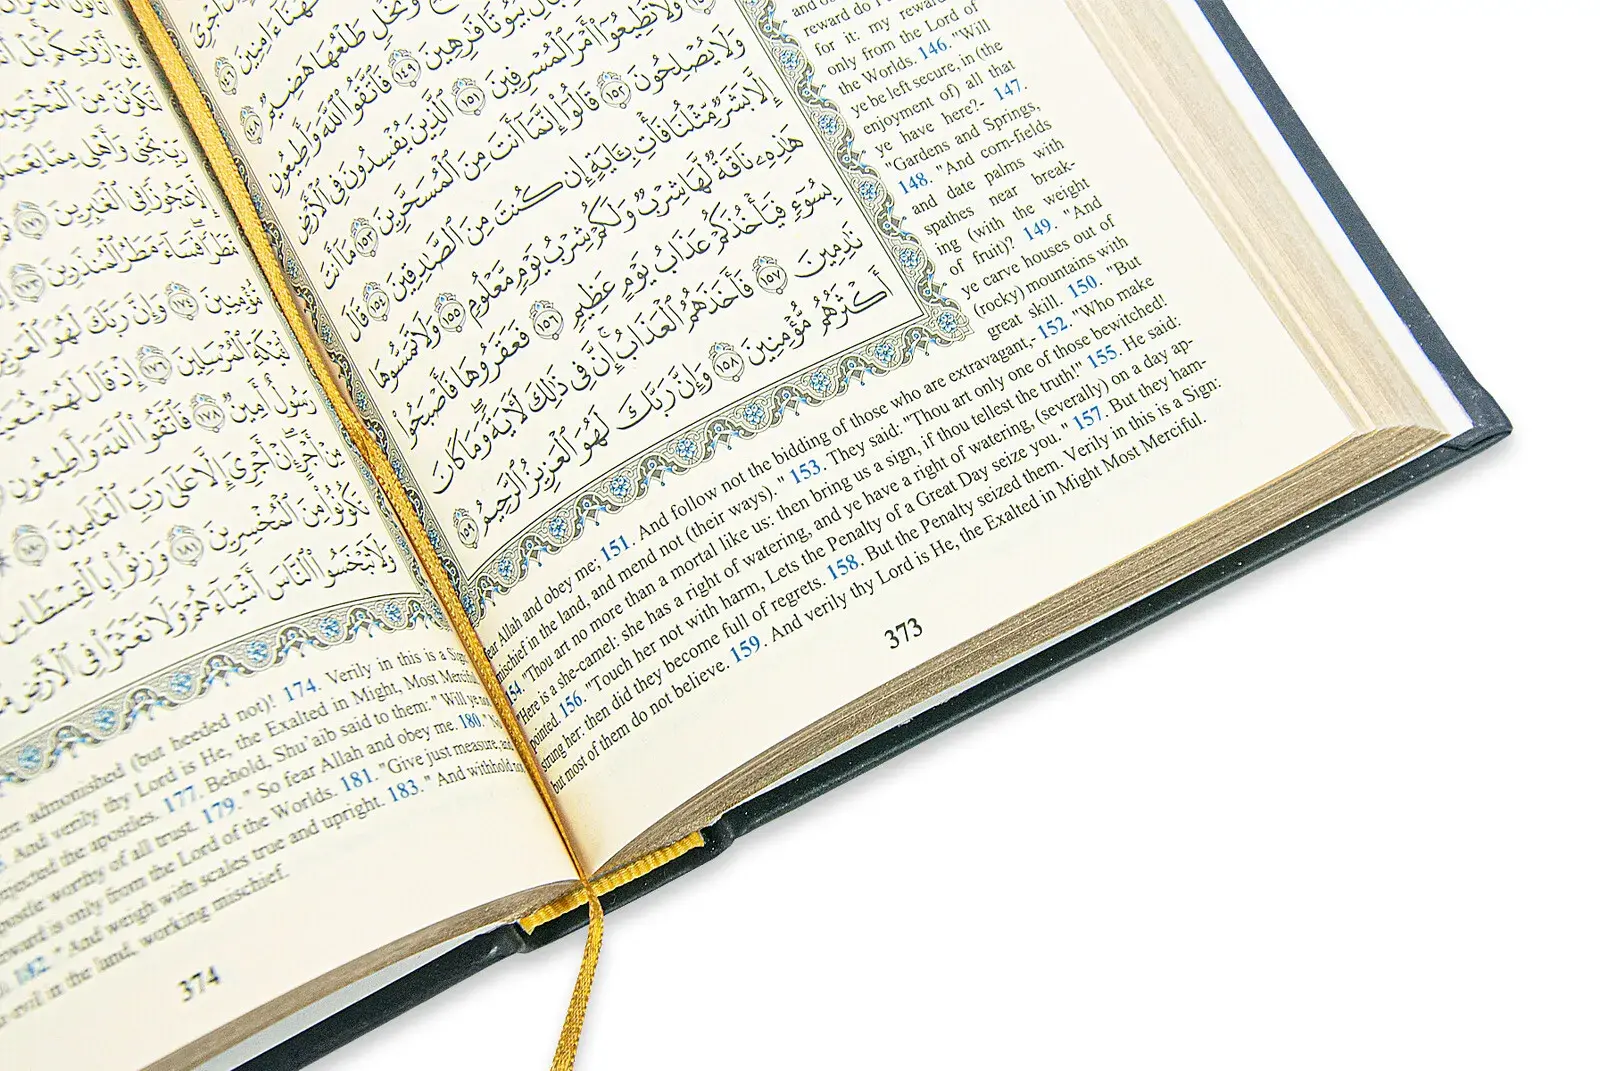 أَجْرِىَ
ءَامِنِينَ ١٤٦
وَنَخْلٍ طَلْعُهَا هَضِيمٌ ١٤٨
بُيُوتًا فَٰرِهِينَ ١٤٩ فَٱتَّقُوا۟ ٱللَّهَ وَأَطِيعُونِ
وَلَا تُطِيعُوٓا۟ أَمْرَ ٱلْمُسْرِفِينَ ١٥١ ٱلَّذِينَ يُفْسِدُونَ فِى ٱلْأَرْضِ
وَلَا يُصْلِحُونَ ١٥٢ قَالُوٓا۟ إِنَّمَآ أَنتَ مِنَ ٱلْمُسَحَّرِينَ ١٥٣ مَآ أَنتَ
إِلَّا بَشَرٌ مِّثْلُنَا فَأْتِ بِـَٔايَةٍ إِن كُنتَ مِنَ ٱلصَّٰدِقِينَ ١٥٤ قَالَ
هَٰذِهِۦ نَاقَةٌ لَّهَا شِرْبٌ وَلَكُمْ شِرْبُ يَوْمٍ مَّعْلُومٍ ١٥٥ وَلَا تَمَسُّوهَا
بِسُوٓءٍ فَيَأْخُذَكُمْ عَذَابُ يَوْمٍ عَظِيمٍ ١٥٦ فَعَقَرُوهَا فَأَصْبَحُوا۟
نَٰدِمِينَ ١٥٧ فَأَخَذَهُمُ ٱلْعَذَابُ ۗ إِنَّ فِى ذَٰلِكَ لَـَٔايَةً ۖ وَمَا كَانَ
أَكْثَرُهُم مُّؤْمِنِينَ ١٥٨ وَإِنَّ رَبَّكَ لَهُوَ ٱلْعَزِيزُ ٱلرَّحِيمُ ١٥٩
reward do I
for it: my reward
only from the Lord of
the Worlds. 146. "Will
ye be left secure, in (the
enjoyment of) all that
ye have here?- 147.
"Gardens and Springs,
148. "And corn-fields
and date palms with
spathes near break-
ing (with the weight
of fruit)? 149. "And
ye carve houses out of
(rocky) mountains with
great skill. 150. "But
fear Allah and obey me; 151. And follow not the bidding of those who are extravagant,- 152. "Who make
mischief in the land, and mend not (their ways). " 153. They said: "Thou art only one of those bewitched!
154. "Thou art no more than a mortal like us: then bring us a sign, if thou tellest the truth!" 155. He said:
"Here is a she-camel: she has a right of watering, and ye have a right of watering, (severally) on a day ap-
pointed. 156. "Touch her not with harm, Lets the Penalty of a Great Day seize you. " 157. But they ham-
strung her: then did they become full of regrets. 158. But the Penalty seized them. Verily in this is a Sign:
but most of them do not believe. 159. And verily thy Lord is He, the Exalted in Might Most Merciful.
373
مِّنْ أَزْوَٰجِكُم بَلْ
لَتَكُونَنَّ مِنَ ٱلْمُخْرَجِينَ
رَبِّ نَجِّنِى وَأَهْلِى مِمَّا يَعْمَلُونَ
إِلَّا عَجُوزًا فِى ٱلْغَٰبِرِينَ ١٧١
مَّطَرًا ۖ فَسَآءَ مَطَرُ ٱلْمُنذَرِينَ ١٧٣
مُّؤْمِنِينَ ١٧٤ وَإِنَّ رَبَّكَ لَهُوَ ٱلْعَزِيزُ
لْـَٔيْكَةِ ٱلْمُرْسَلِينَ ١٧٦ إِذْ قَالَ لَهُمْ شُعَيْبٌ
رَسُولٌ أَمِينٌ ١٧٨ فَٱتَّقُوا۟ ٱللَّهَ وَأَطِيعُونِ
مِنْ أَجْرٍ ۖ إِنْ أَجْرِىَ إِلَّا عَلَىٰ رَبِّ ٱلْعَٰلَمِينَ ١٨٠
تَكُونُوا۟ مِنَ ٱلْمُخْسِرِينَ ١٨١ وَزِنُوا۟ بِٱلْقِسْطَاسِ
وَلَا تَبْخَسُوا۟ ٱلنَّاسَ أَشْيَآءَهُمْ وَلَا تَعْثَوْا۟ فِى ٱلْأَرْضِ
admonished (but heeded not)! 174. Verily in this is a Sign
And verily thy Lord is He, the Exalted in Might, Most Merciful
rejected the apostles. 177. Behold, Shu'aib said to them: " Will ye not
apostle worthy of all trust. 179. " So fear Allah and obey me. 180. " No
reward is only from the Lord of the Worlds. 181. "Give just measure,
182. " And weigh with scales true and upright. 183. " And withhold
evil in the land, working mischief.
374